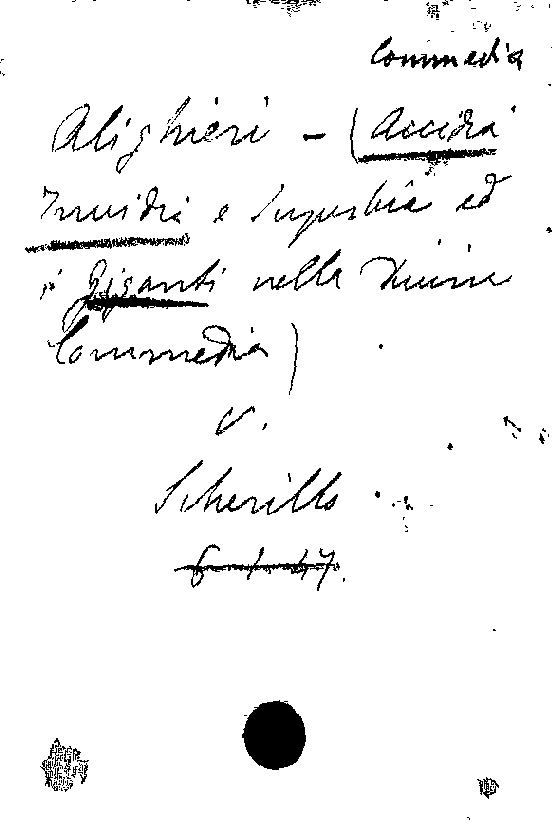 Commedia
Alighieri - (Accidia
Invidia e Superbia ed
i Giganti nella Divina
Commedia)
v.
Scherillo
6 - 1 - 47.